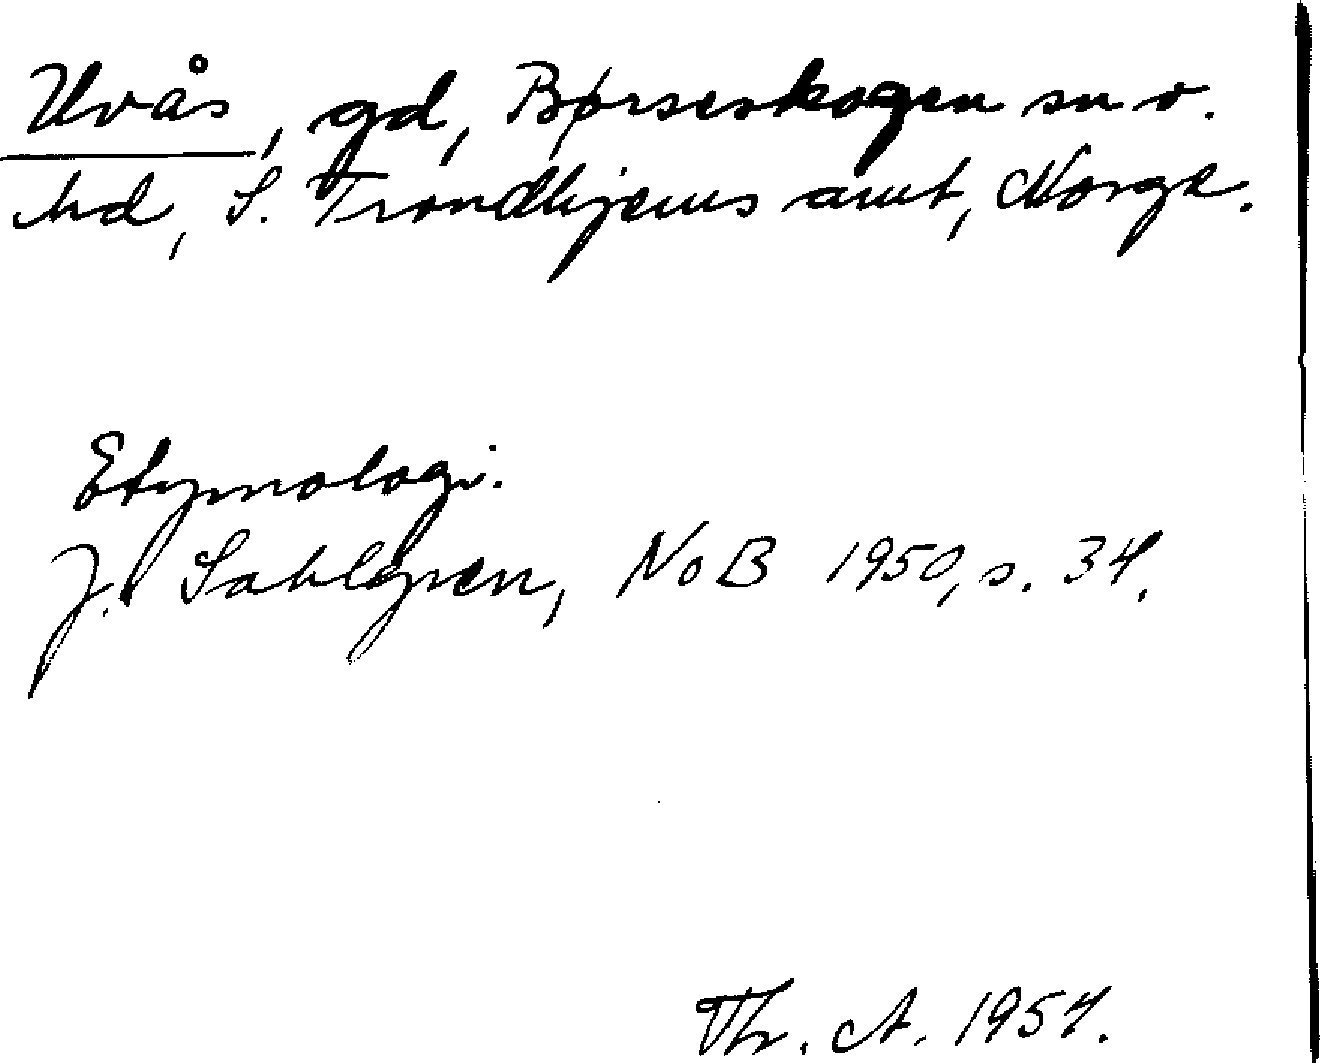 Uvås, gd, Børseskogen sn o.
hd, S. Trondhjems amt, Norge.
Etymologi.
J. Sahlgren, NoB 1950, s. 34.
Th. A. 1954.